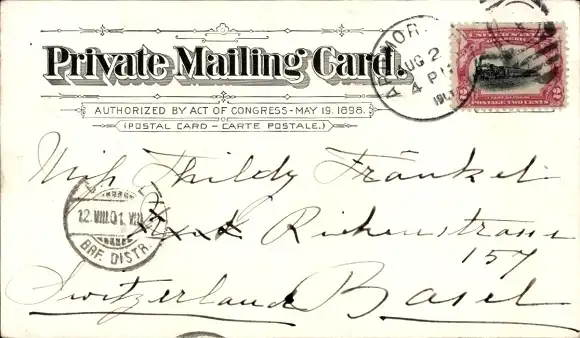 Private Mailing Card.
AUTHORIZED BY ACT OF CONGRESS-MAY 19, 1898.
OF
(POSTAL CARD - CARTE POSTALE.)
ARMOR
AUG 2
4 P
190
UNITED STATES
OF AMERICA
2 2
POSTAGE TWO CENTS
Miss Thildy Fränkel
12.VIII.01.VIII
BRF. DISTR.
Riehenstrasse
157
Switzerland Basel